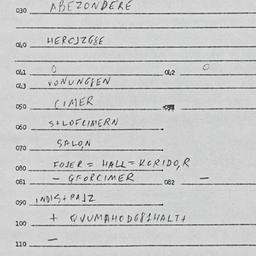 030 ABEZONDERE
040 HEROJZGSE
041 0 042 0
043 VONUNGJEN
050 CIMER
060 S+LOFCIMERN
070 SALON
080 FOJER = HALL = KORIDO,R
081 - GFORCIMER 082 -
090 INDIS+PAJZ
100
110 -